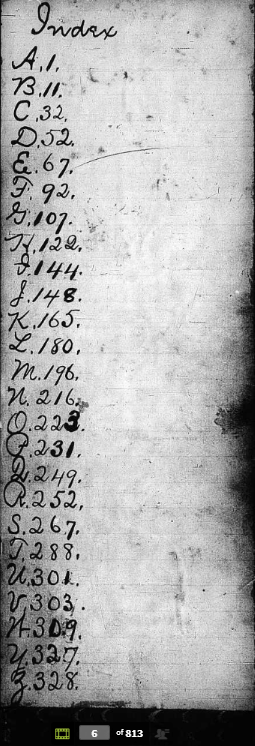 Index
A.1.
B.11.
C.32.
D.52.
E.67.
F.92.
G.107.
H.122.
I.144.
J.148.
K.165.
L.180.
M.196.
N.216.
O.223.
P.231.
Q.249.
R.252.
S.267.
T.288.
U.301.
V.303.
W.309.
Y.327.
Z.328.
6 of 813